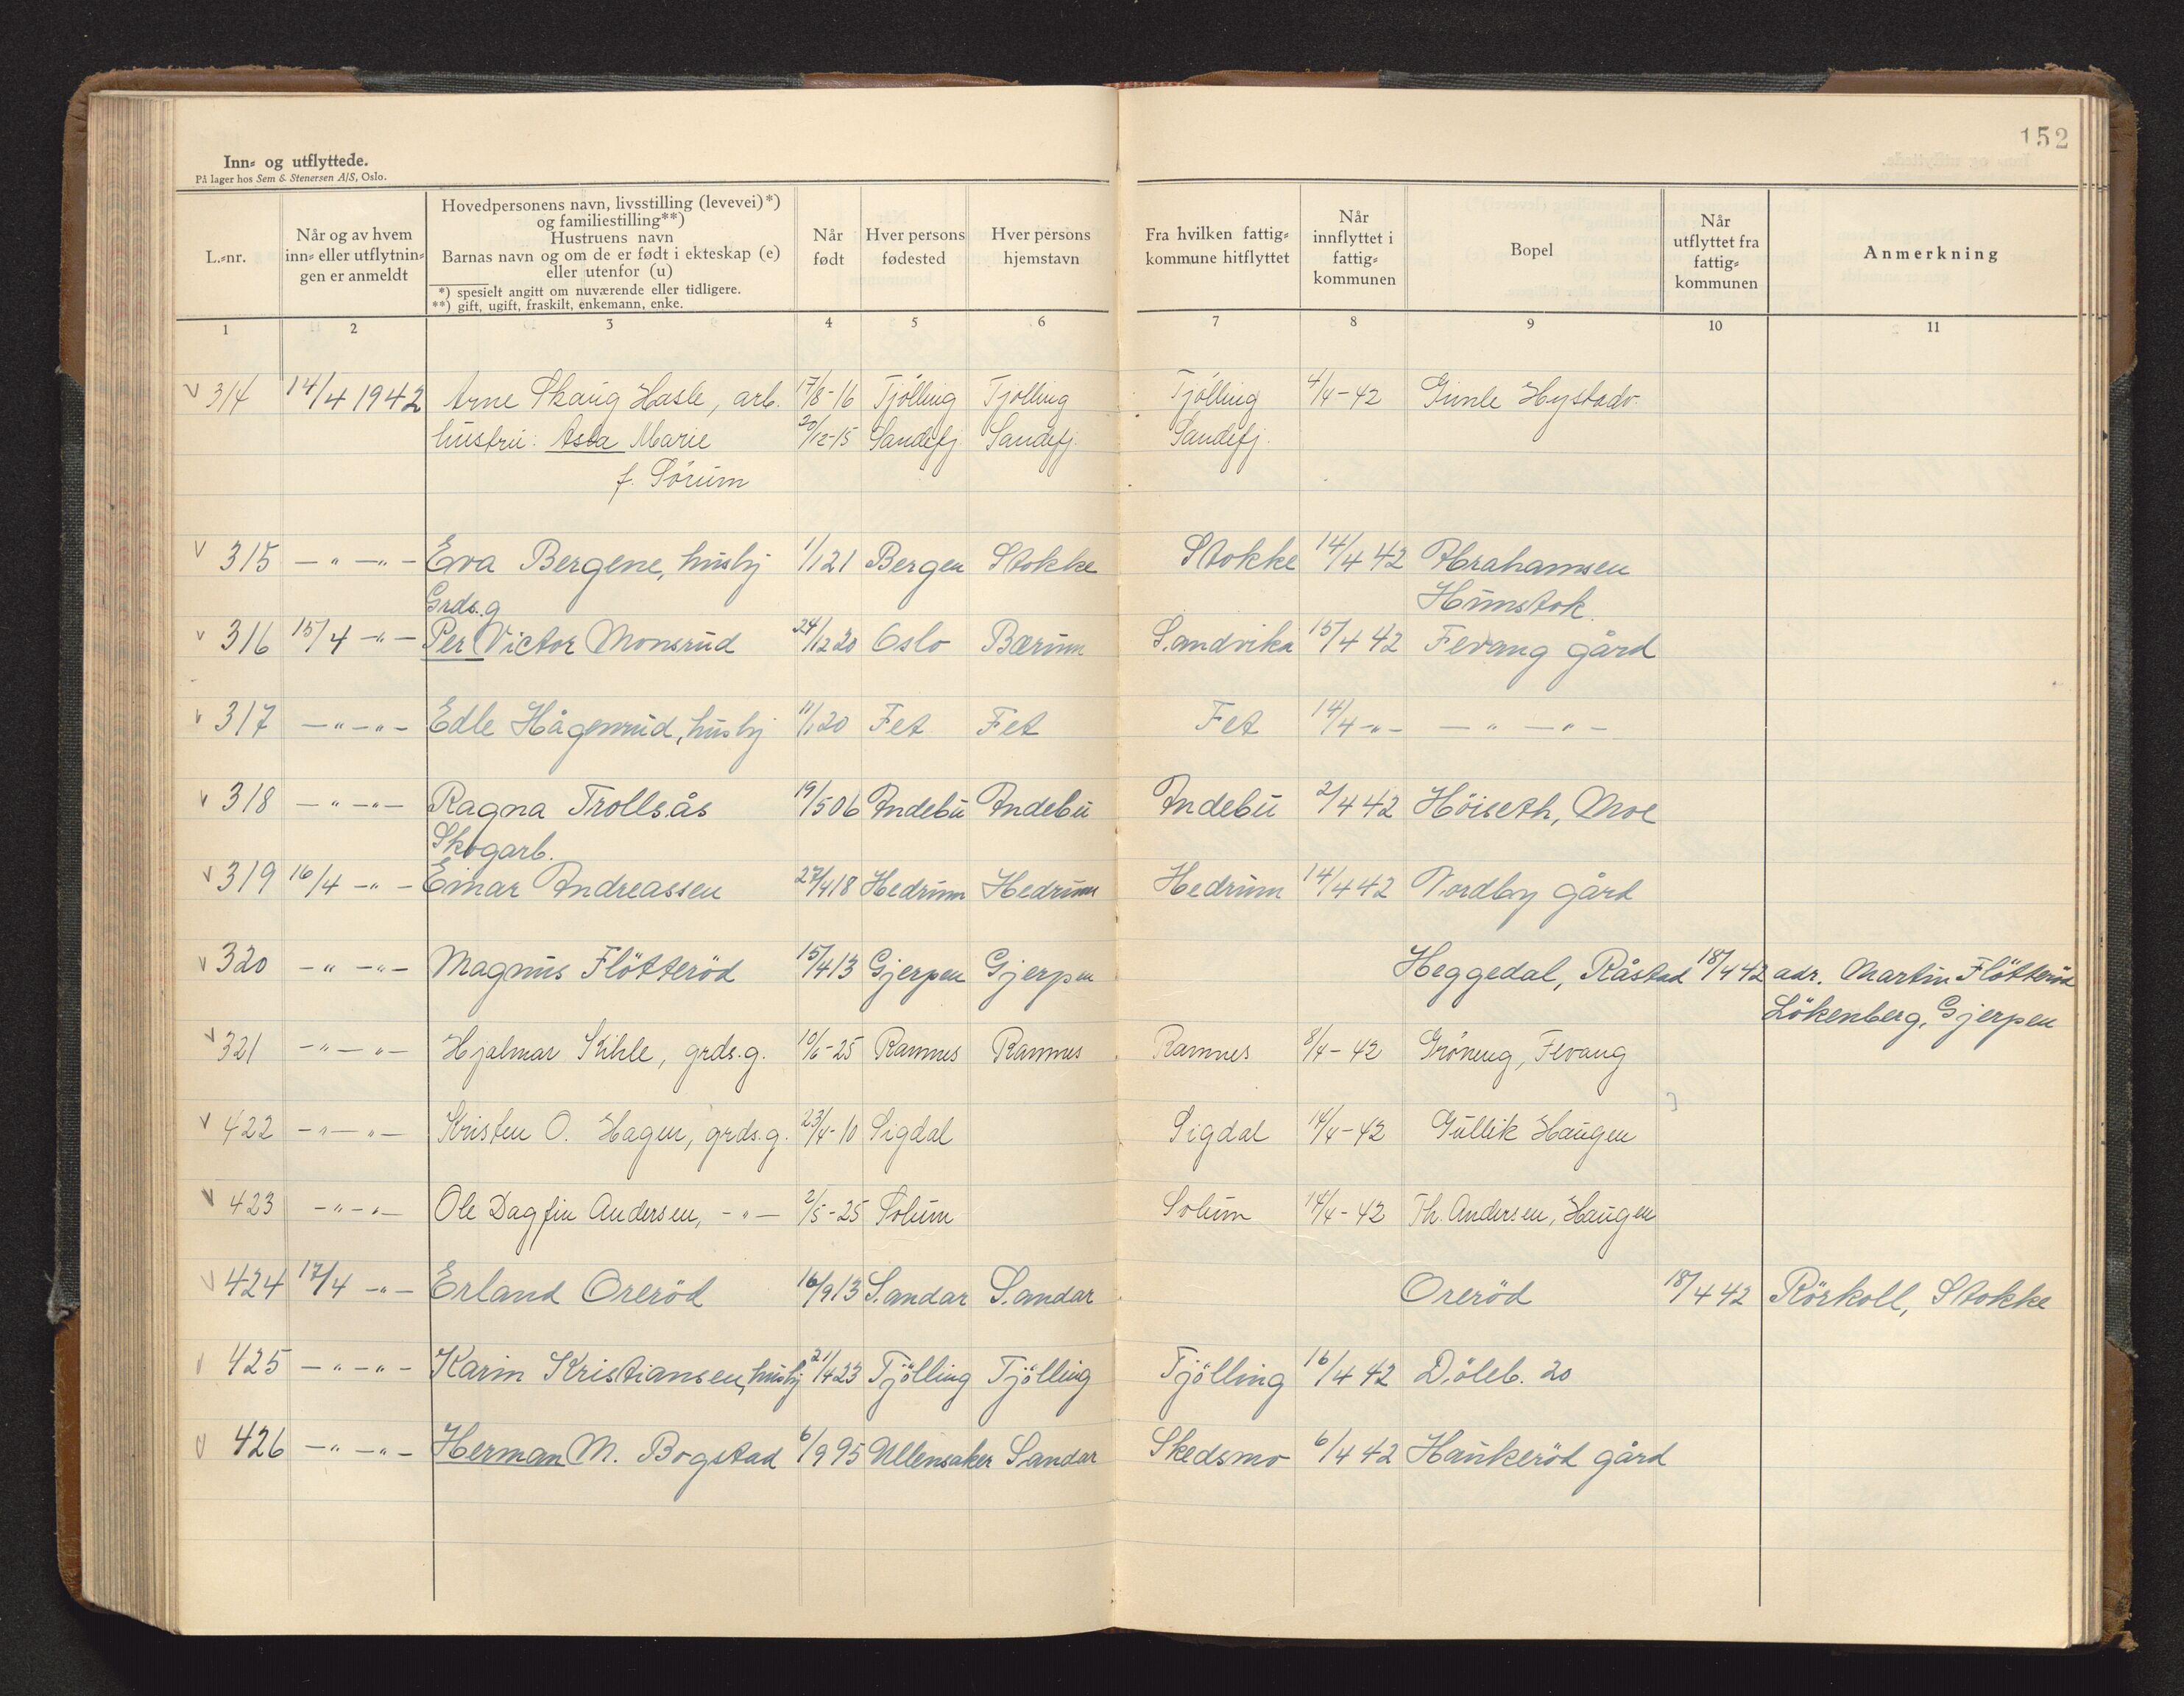 152
Inn- og utflyttede.
På lager hos Sem & Stenersen A/S, Oslo.
L.-nr.
Når og av hvem inn- eller utflytningen er anmeldt
Hovedpersonens navn, livsstilling (levevei)*)
og familiestilling**)
Hustruens navn
Barnas navn og om de er født i ekteskap (e)
eller utenfor (u)
*) spesielt angitt om nuværende eller tidligere.
**) gift, ugift, fraskilt, enkemann, enke.
Når født
Hver persons fødested
Hver persons hjemstavn
Fra hvilken fattig-
kommune hitflyttet
Når innflyttet i fattig-kommunen
Bopel
Når utflyttet fra fattig-kommunen
Anmerkning
1 2 3 4 5 6 7 8 9 10 11
V 314 14/4 1942 Arne Skaug Hasle, arb. 17/8-16 Tjölling Tjölling Tjölling 4/4-42 Gimle Hystadv.
hustru: Asta Marie 20/12-15 Sandefj. Sandefj. Sandefj.
f. Sörum
V 315 -"-"- Eva Bergene, hushj 1/1 21 Bergen Stokke Stokke 14/4 42 Abrahamsen
Grds.g Himstok.
V 316 15/4 -"- Per Victor Monsrud 24/12 20 Oslo Bærum Sandvika 15/4 42 Fevang gård
V 317 -"-"- Edle Hågenrud, hushj 11/1 20 Fet Fet Fet 14/4 -"- -"-"-
V 318 -"-"- Ragna Trollsås 19/5 06 Andebu Andebu Andebu 2/4 42 Höiseth, Moe
Skogarb.
V 319 16/4 -"- Einar Andreassen 27/4 18 Hedrum Hedrum Hedrum 14/4 42 Nordby gård
V 320 -"-"- Magnus Flötteröd 15/4 13 Gjerpen Gjerpen Heggedal, Råstad 18/4 42 adr. Martin Flötteröd
Lökenberg, Gjerpen
V 321 -"-"- Hjalmar Kihle, grds.g. 10/6-25 Ramnes Ramnes Ramnes 8/4-42 Gröneng, Fevang
V 422 -"-"- Kristen O. Hagen, grds.g. 23/4-10 Sigdal Sigdal 14/4-42 Gullik Haugen
V 423 -"-"- Ole Dagfin Andersen, -"- 2/5-25 Solum Solum 14/4-42 Th. Andersen, Haugen
V 424 17/4 -"- Erland Oreröd 16/9 13 Sandar Sandar Oreröd 18/4 42 Rörkoll, Stokke
V 425 -"-"- Karin Kristiansen, hushj 21/4 23 Tjölling Tjölling Tjölling 16/4 42 Döleb. 20
V 426 -"-"- Herman M. Bogstad 6/9 95 Ullensaker Sandar Skedsmo 6/4 42 Haukeröd gård